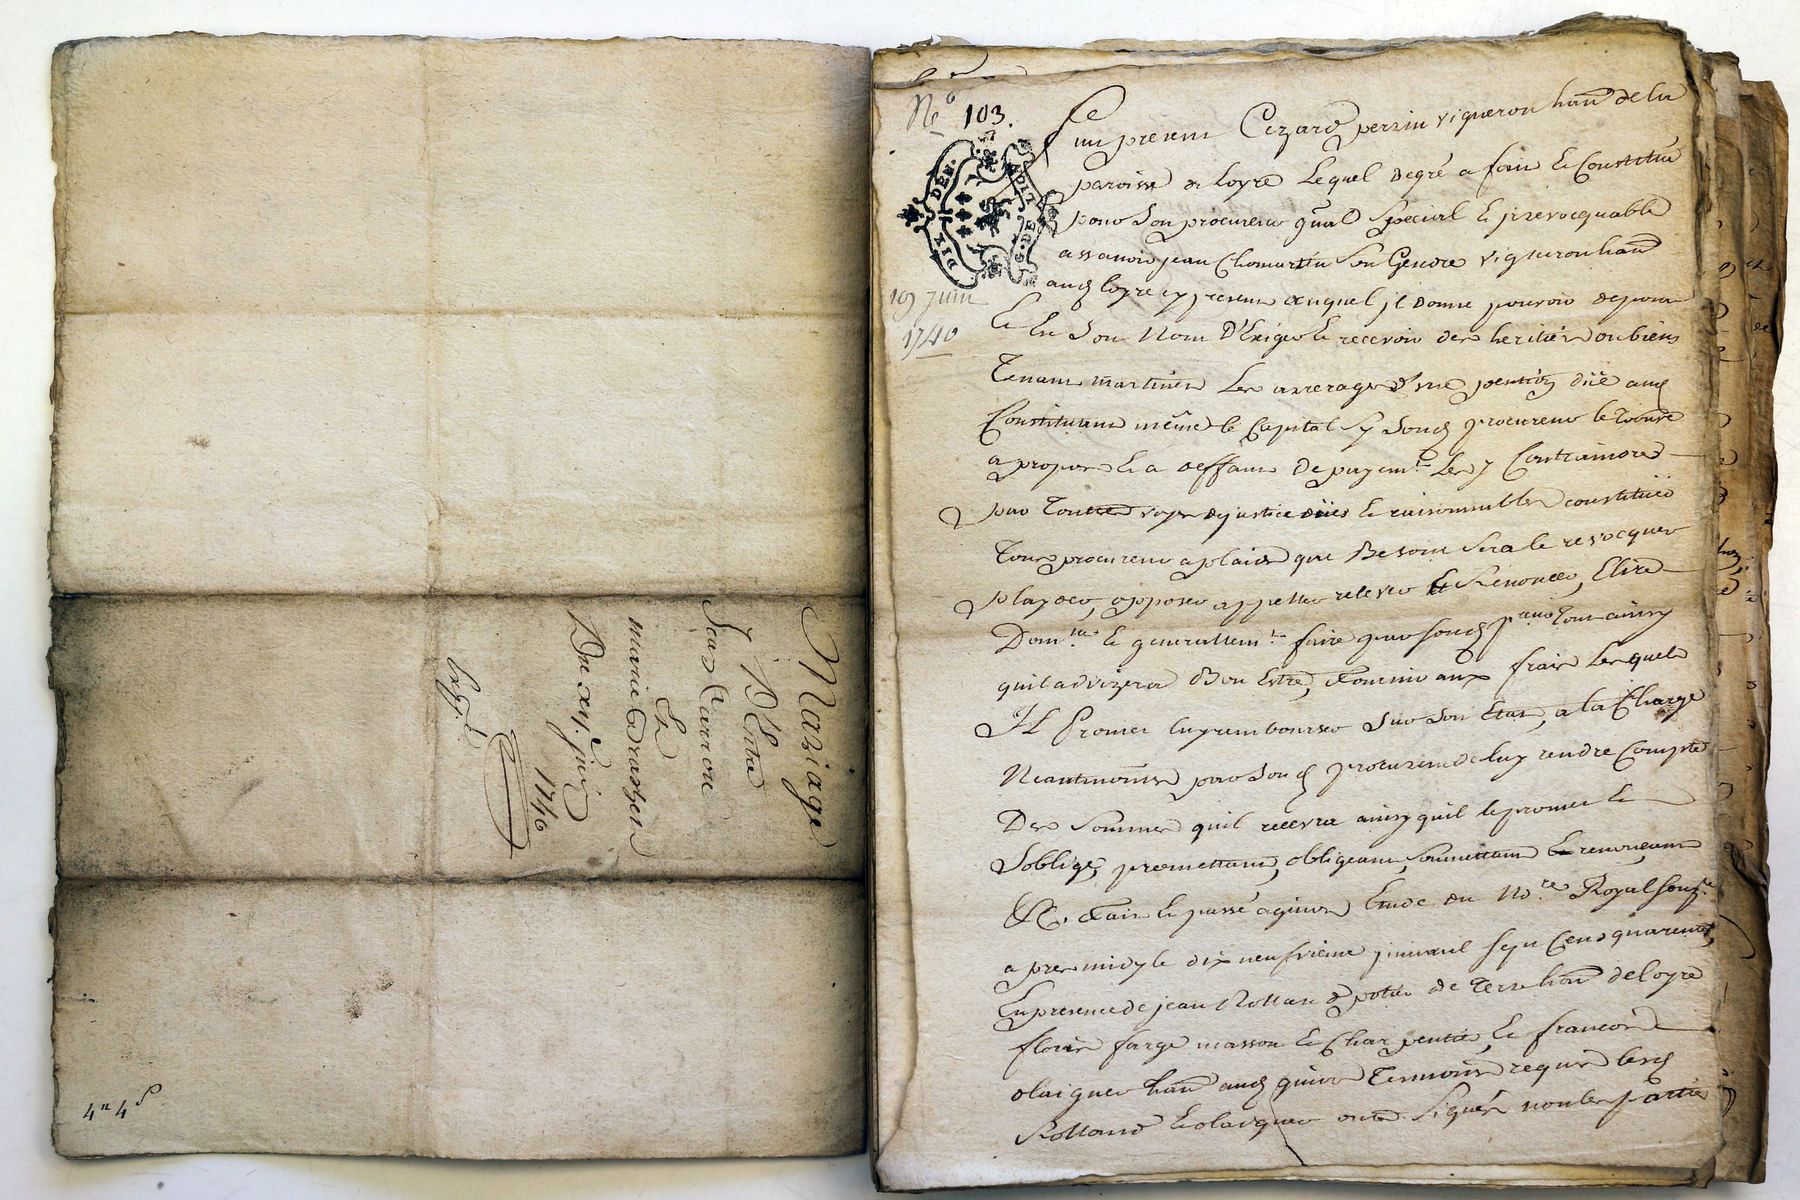 Mariage
D'Entre
Jean Carrou
Et
marie
Du xvj. juin
1740
Expé.
4ˡˡ 4ˢ
Nº 103.
DIX DEN.
G. DE LION
19 juin
1740
fut present Cezard perrin vigneron hant de la
paroisse de Loyre Lequel degré a fait Et Constitué
pour son procureur gñal special Et jrrevocquable
assavoir jean Chomartin son Gendre vigneron hant
aud loyre cy present auquel jl donne pouvoir de pour
Et En son Nom D'Exiger Et recevoir des heritiers ou biens
Tenant martinier Les arrerages d'une pention düe aud
Constituant même le Capital sy sond procureur le trouve
a propos Et a deffaut de payemt Les y Contraindre
par Toutes voyes de justice düés Et raisonnables constituer
Tous procureur a plaids que Besoin sera le revocquer
playder, opposer appeller relever Et Renoncer, Elire
Domlle Et generallemt faire par sond preur tout ainsy
quil advizera Bon Estre, fournir aux frais Lesquels
jl Promet luy rembourser sur son Etat, a la Charge
Neantmoins pour sond procureur de luy rendre Compte
Des sommes quil recevra ainsy quil le promet Et
s'oblige, promettant, obligeant, soumettant Et renonceant
&c. fait Et passé a givors Etude du Nre Royal souzné
apres midy le dix neufvieme juin mil sept Cents quarente,
En presence de jean Rolland potier de terre hant de loyre
fleurie farge masson Et Charpentier, Et francois
olaignier hant aud givors Temoins requis lesd
Rolland Et olaignier ont signés non les parties